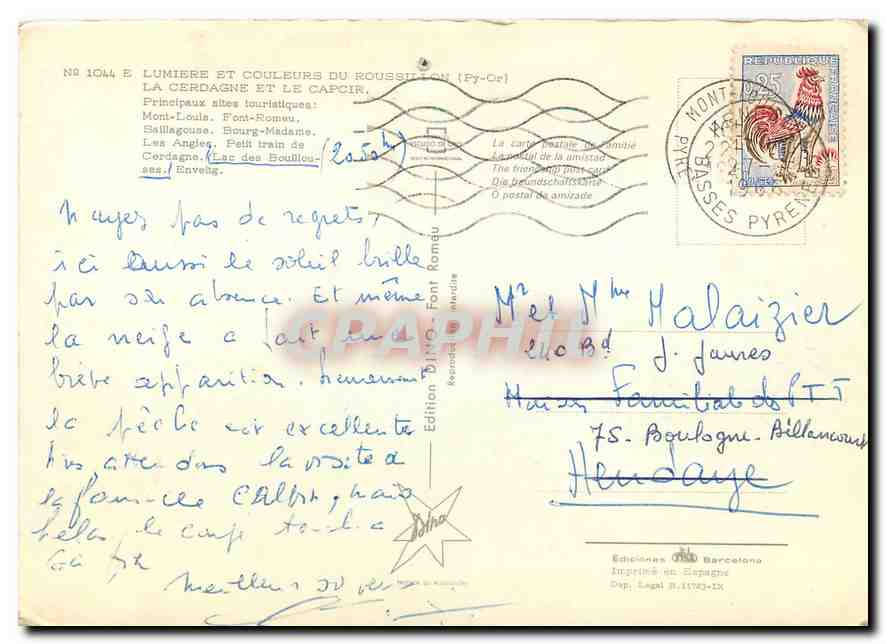 Nº 1044 E LUMIERE ET COULEURS DU ROUSSILLON (Py-Or)
LA CERDAGNE ET LE CAPCIR.
Principaux sites touristiques:
Mont-Louis. Font-Romeu.
Saillagouse. Bourg-Madame.
Les Angles. Petit train de
Cerdagne. (Lac des Bouillou-
ses.) Enveitg.
(2050 m)
La carte postale de l'amitié
La postal de la amistad
The friendship post card
Die freundschaftskarte
O postal da amizade
REPUBLIQUE FRANÇAISE
0,25
BASSES PYRENEES
N'ayez pas de regrets,
ici aussi le soleil brille
par son absence. Et même
la neige a fait une
brève apparition. Heureusement
la pêche est excellente
Nous attendons la visite de
la famille
hélas, le
Meilleurs
Edition DINO - Font Romeu
Reproduction interdite
CPAPHIL
Mr et Mme Malaizier
240 Bd J. Jaures
Maison Familiale des PTT
75. Boulogne-Billancourt
Hendaye
Dino
Ediciones Barcelona
Imprimé en Espagne
Dep. Legal B.11723-IX